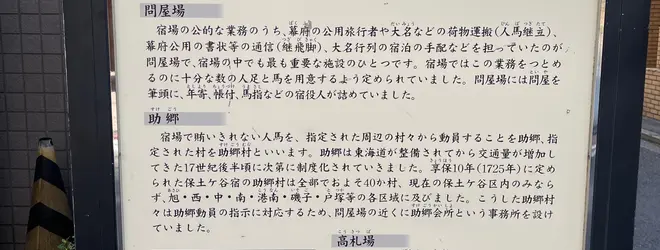 問屋場
宿場の公的な業務のうち、幕府の公用旅行者や大名などの荷物運搬(人馬継立)、
幕府公用の書状等の通信(継飛脚)、大名行列の宿泊の手配などを担っていたのが
問屋場で、宿場の中でも最も重要な施設のひとつです。宿場ではこの業務をつとめ
るのに十分な数の人足と馬を用意するよう定められていました。問屋場には問屋を
筆頭に、年寄、帳付、馬指などの宿役人が詰めていました。
助郷
宿場で賄いきれない人馬を、指定された周辺の村々から動員することを助郷、指
定された村を助郷村といいます。助郷は東海道が整備されてから交通量が増加し
てきた17世紀後半頃に次第に制度化されていきました。享保10年(1725年)に定め
られた保土ケ谷宿の助郷村は全部でおよそ40か村、現在の保土ケ谷区内のみなら
ず、旭・西・中・南・港南・磯子・戸塚等の各区域に及びました。こうした助郷村
々は助郷動員の指示に対応するため、問屋場の近くに助郷会所という事務所を設け
ていました。
高札場